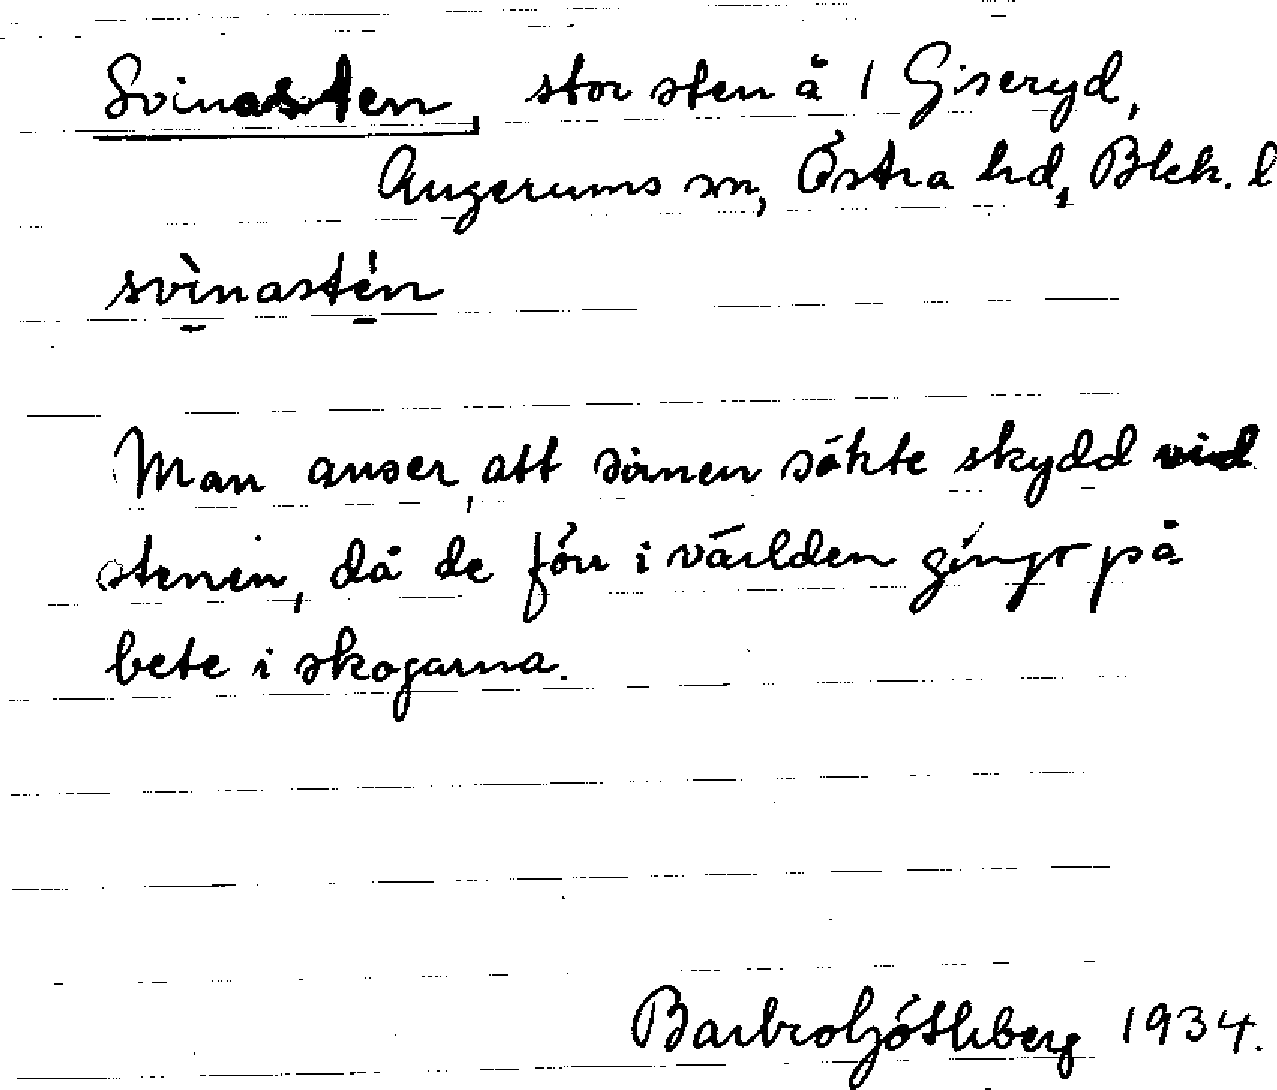 Svinasten, stor sten å 1 Giseryd,
Augerums sn, Östra hd, Blek. l
svìnastén
Man anser, att svinen sökte skydd vid
stenen, då de förr i världen gingo på
bete i skogarna.
Barbro Göthberg 1934.